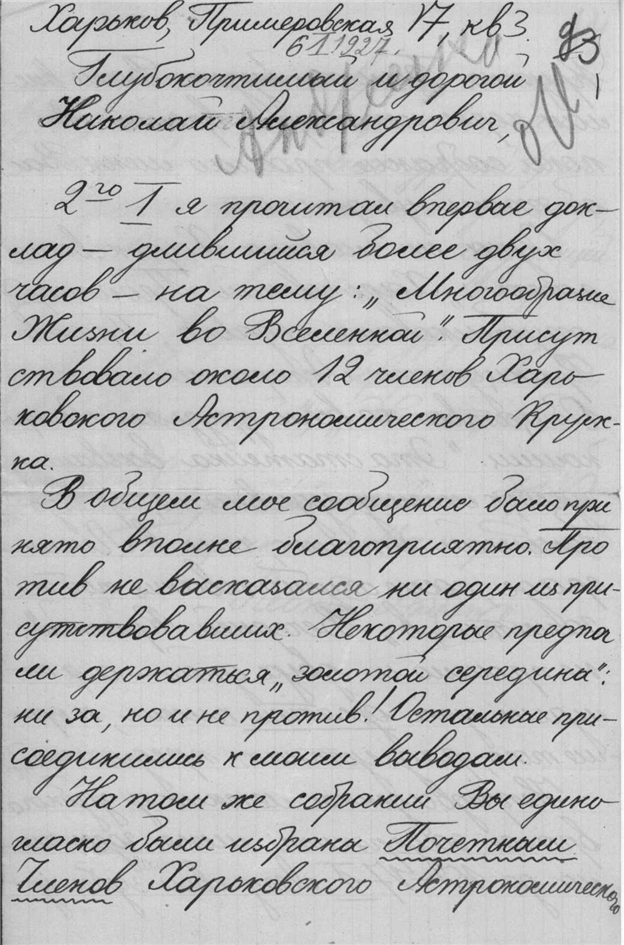 Харьков, Примеровская 17, кв 3.
6 I 1927.
93
Глубокочтимый и дорогой
Николай Александрович,
2го I я прочитал впервые док-
лад — длившийся более двух
часов — на тему: „Многообразие
Жизни во Вселенной". Присут
ствовало около 12 членов Харь-
ковского Астрономического Круж-
ка.
В общем мое сообщение было при
нято вполне благоприятно. Про
тив не высказался ни один из при-
сутствовавших. Некоторые предпо
ли держаться „золотой середины":
ни за, но и не против! Остальные при-
соединились к моим выводам.
На том же собрании Вы едино-
гласно были избраны Почетным
Членов Харьковского Астрономического